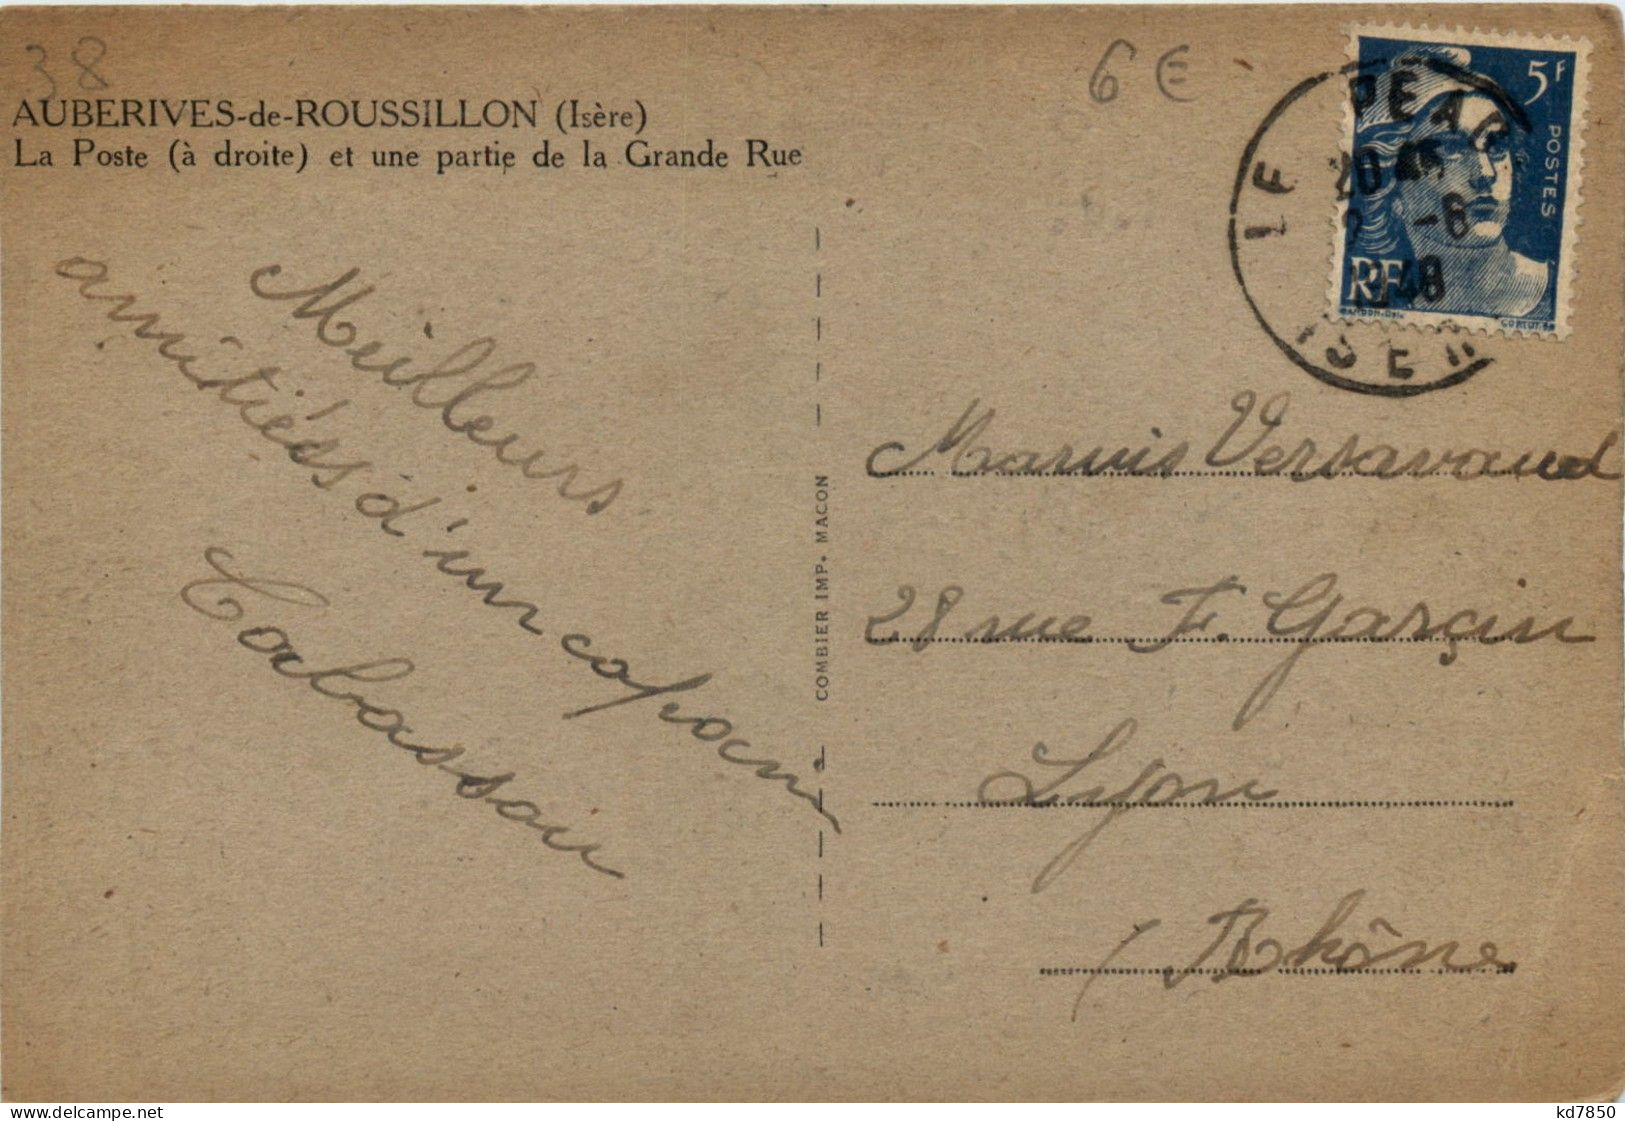 38
6 €
AUBERIVES-de-ROUSSILLON (Isère)
La Poste (à droite) et une partie de la Grande Rue
5F
POSTES
RF
LE PÉAG
20
-6
1948
ISER
Meilleurs
amitiés d'un copain
Cabassoir
COMBIER IMP. MACON
Marius Versavaud
28 rue F. Garçin
Lyon
(Rhône
kd7850